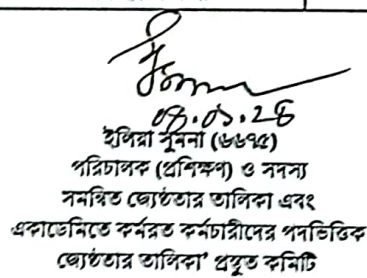 ইলিয়া সুমনা (৬৬৭৫)
পরিচালক (প্রশিক্ষণ) ও সদস্য
সমন্বিত জ্যেষ্ঠতার তালিকা এবং
একাডেমিতে কর্মরত কর্মচারীদের পদভিত্তিক
জ্যেষ্ঠতার তালিকা' প্রস্তুত কমিটি